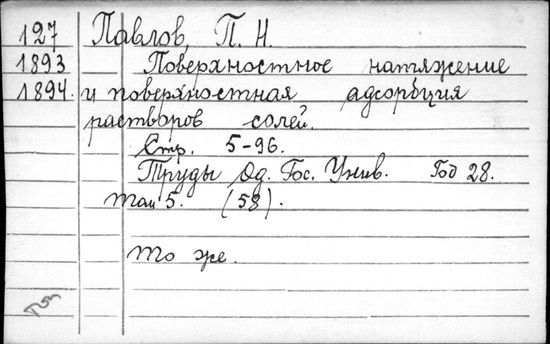 127 Павлов, П. Н.
1893 Поверхностное натяжение
1894. и поверхностная адсорбция
растворов солей.
Стр. 5-96.
Труды Од. Гос. Унив. Год 28.
том 5. (58).
то же.